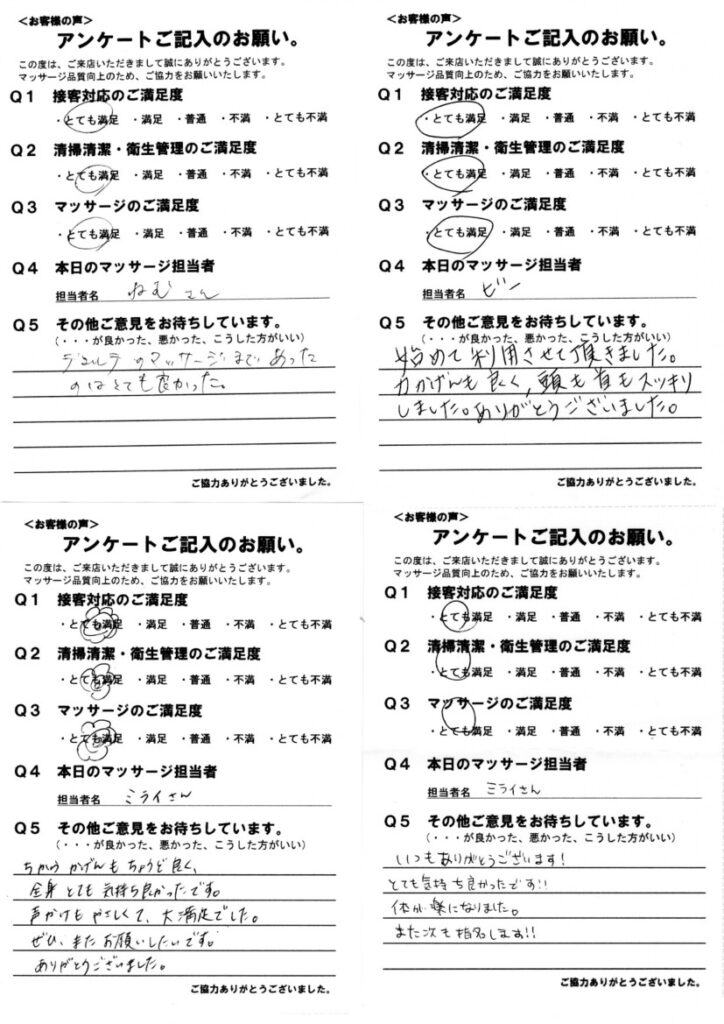 ＜お客様の声＞
アンケートご記入のお願い。
この度は、ご来店いただきまして誠にありがとうございます。
マッサージ品質向上のため、ご協力をお願いいたします。
Q1 接客対応のご満足度
・とても満足 ・満足 ・普通 ・不満 ・とても不満
Q2 清掃清潔・衛生管理のご満足度
・とても満足 ・満足 ・普通 ・不満 ・とても不満
Q3 マッサージのご満足度
・とても満足 ・満足 ・普通 ・不満 ・とても不満
Q4 本日のマッサージ担当者
担当者名 ねむさん
Q5 その他ご意見をお待ちしています。
(・・・が良かった、悪かった、こうした方がいい)
デコルテのマッサージまであった
のはとても良かった。
ご協力ありがとうございました。
＜お客様の声＞
アンケートご記入のお願い。
この度は、ご来店いただきまして誠にありがとうございます。
マッサージ品質向上のため、ご協力をお願いいたします。
Q1 接客対応のご満足度
・とても満足 ・満足 ・普通 ・不満 ・とても不満
Q2 清掃清潔・衛生管理のご満足度
・とても満足 ・満足 ・普通 ・不満 ・とても不満
Q3 マッサージのご満足度
・とても満足 ・満足 ・普通 ・不満 ・とても不満
Q4 本日のマッサージ担当者
担当者名 ビー
Q5 その他ご意見をお待ちしています。
(・・・が良かった、悪かった、こうした方がいい)
始めて利用させて頂きました。
力かげんも良く、頭も首もスッキリ
しました。ありがとうございました。
ご協力ありがとうございました。
＜お客様の声＞
アンケートご記入のお願い。
この度は、ご来店いただきまして誠にありがとうございます。
マッサージ品質向上のため、ご協力をお願いいたします。
Q1 接客対応のご満足度
・とても満足 ・満足 ・普通 ・不満 ・とても不満
Q2 清掃清潔・衛生管理のご満足度
・とても満足 ・満足 ・普通 ・不満 ・とても不満
Q3 マッサージのご満足度
・とても満足 ・満足 ・普通 ・不満 ・とても不満
Q4 本日のマッサージ担当者
担当者名 ミライさん
Q5 その他ご意見をお待ちしています。
(・・・が良かった、悪かった、こうした方がいい)
ちからかげんもちょうど良く、
全身とても気持ち良かったです。
声かけもやさしくて、大満足でした。
ぜひ、またお願いしたいです。
ありがとうございました。
ご協力ありがとうございました。
＜お客様の声＞
アンケートご記入のお願い。
この度は、ご来店いただきまして誠にありがとうございます。
マッサージ品質向上のため、ご協力をお願いいたします。
Q1 接客対応のご満足度
・とても満足 ・満足 ・普通 ・不満 ・とても不満
Q2 清掃清潔・衛生管理のご満足度
・とても満足 ・満足 ・普通 ・不満 ・とても不満
Q3 マッサージのご満足度
・とても満足 ・満足 ・普通 ・不満 ・とても不満
Q4 本日のマッサージ担当者
担当者名 ミライさん
Q5 その他ご意見をお待ちしています。
(・・・が良かった、悪かった、こうした方がいい)
いつもありがとうございます!
とても気持ち良かったです!!
体が楽になりました。
また次も指名します!!
ご協力ありがとうございました。